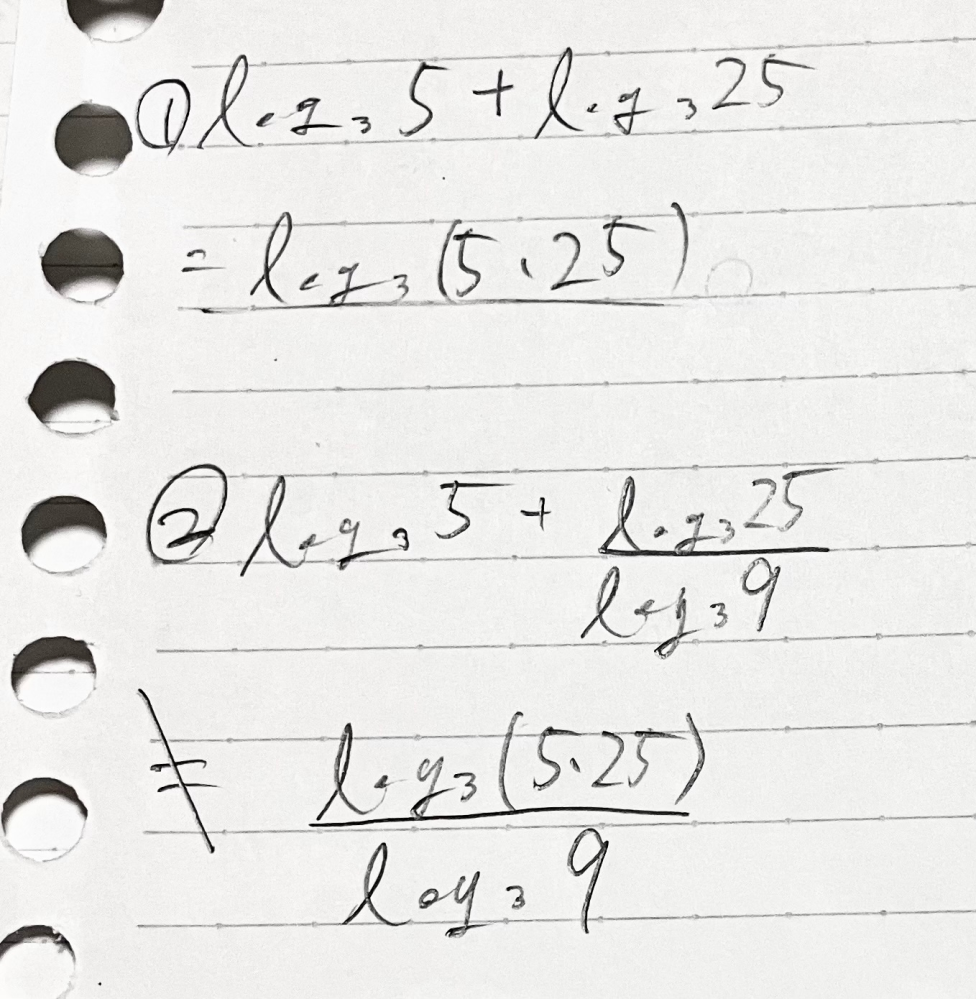 ① log₃ 5 + log₃ 25
= log₃ (5·25)
② log₃ 5 + log₃ 25 / log₃ 9
≠ log₃ (5·25) / log₃ 9